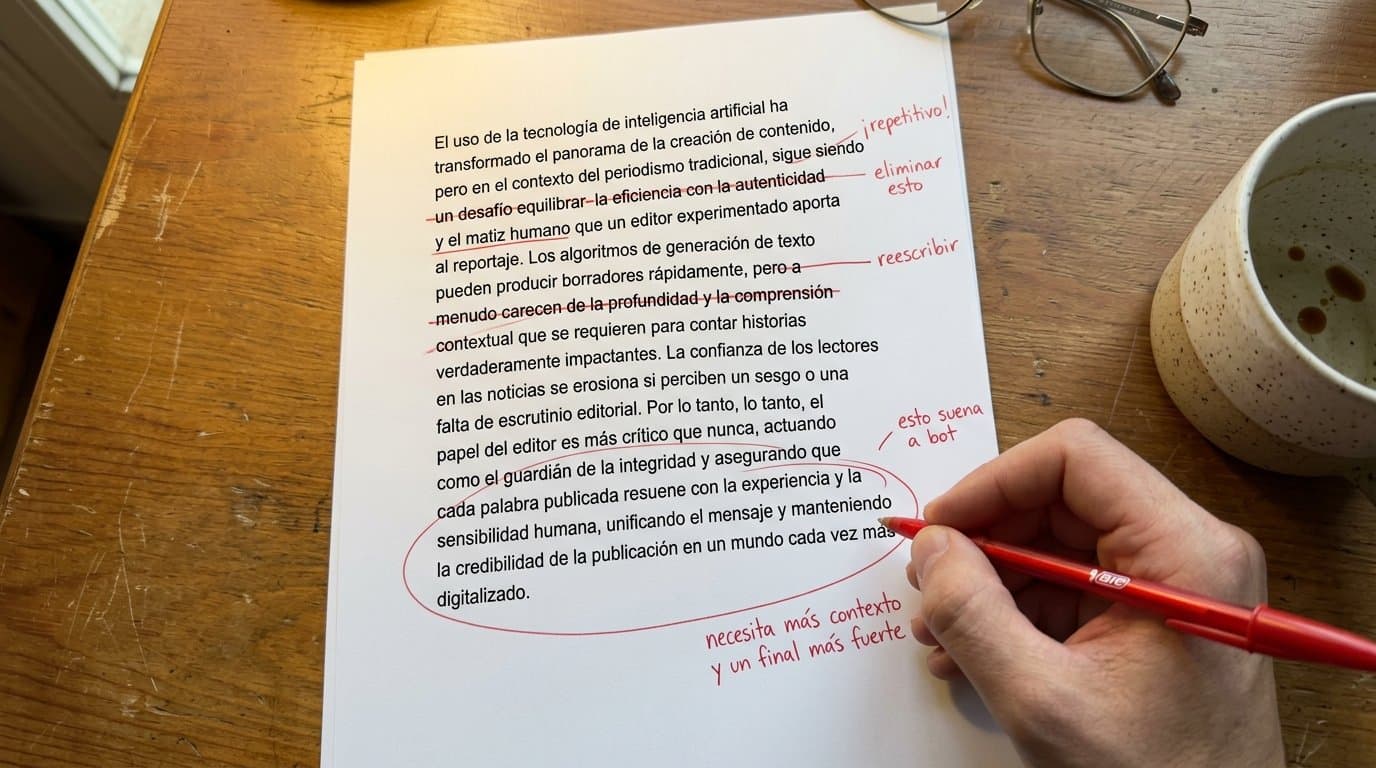 El uso de la tecnología de inteligencia artificial ha
transformado el panorama de la creación de contenido,
¡repetitivo!
pero en el contexto del periodismo tradicional, sigue siendo
un desafío equilibrar la eficiencia con la autenticidad
eliminar
esto
y el matiz humano que un editor experimentado aporta
al reportaje. Los algoritmos de generación de texto
pueden producir borradores rápidamente, pero a
reescribir
menudo carecen de la profundidad y la comprensión
contextual que se requieren para contar historias
verdaderamente impactantes. La confianza de los lectores
en las noticias se erosiona si perciben un sesgo o una
falta de escrutinio editorial. Por lo tanto, lo tanto, el
papel del editor es más crítico que nunca, actuando
esto suena
a bot
como el guardián de la integridad y asegurando que
cada palabra publicada resuene con la experiencia y la
sensibilidad humana, unificando el mensaje y manteniendo
la credibilidad de la publicación en un mundo cada vez más
digitalizado.
necesita más contexto
y un final más fuerte
BIC